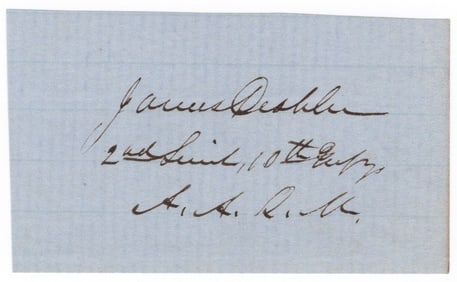 James Deshler
2nd Lieut, 10th Infy,
A. A. Q. M.